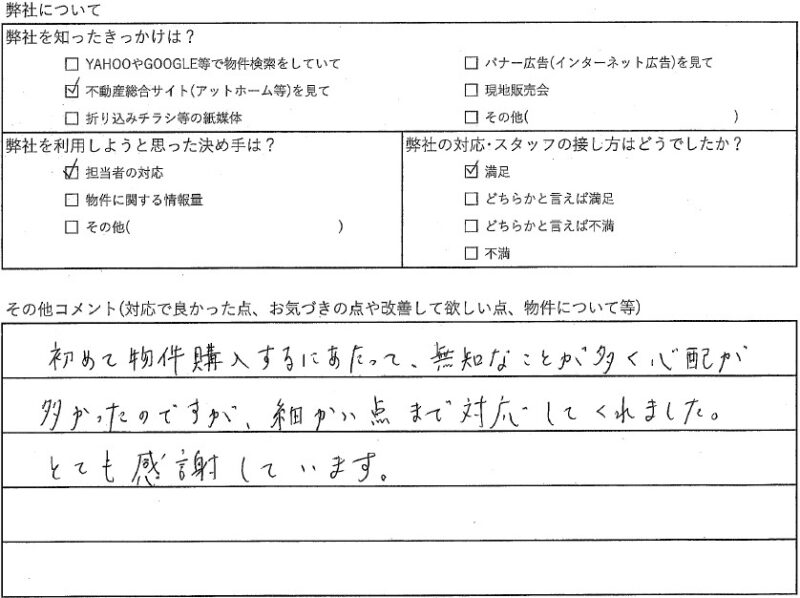 弊社について
弊社を知ったきっかけは？
□ YAHOOやGOOGLE等で物件検索をしていて
□ バナー広告(インターネット広告)を見て
☑ 不動産総合サイト(アットホーム等)を見て
□ 現地販売会
□ 折り込みチラシ等の紙媒体
□ その他( )
弊社を利用しようと思った決め手は？
☑ 担当者の対応
□ 物件に関する情報量
□ その他( )
弊社の対応・スタッフの接し方はどうでしたか？
☑ 満足
□ どちらかと言えば満足
□ どちらかと言えば不満
□ 不満
その他コメント(対応で良かった点、お気づきの点や改善して欲しい点、物件について等)
初めて物件購入するにあたって、無知なことが多く心配が
多かったのですが、細かい点まで対応してくれました。
とても感謝しています。